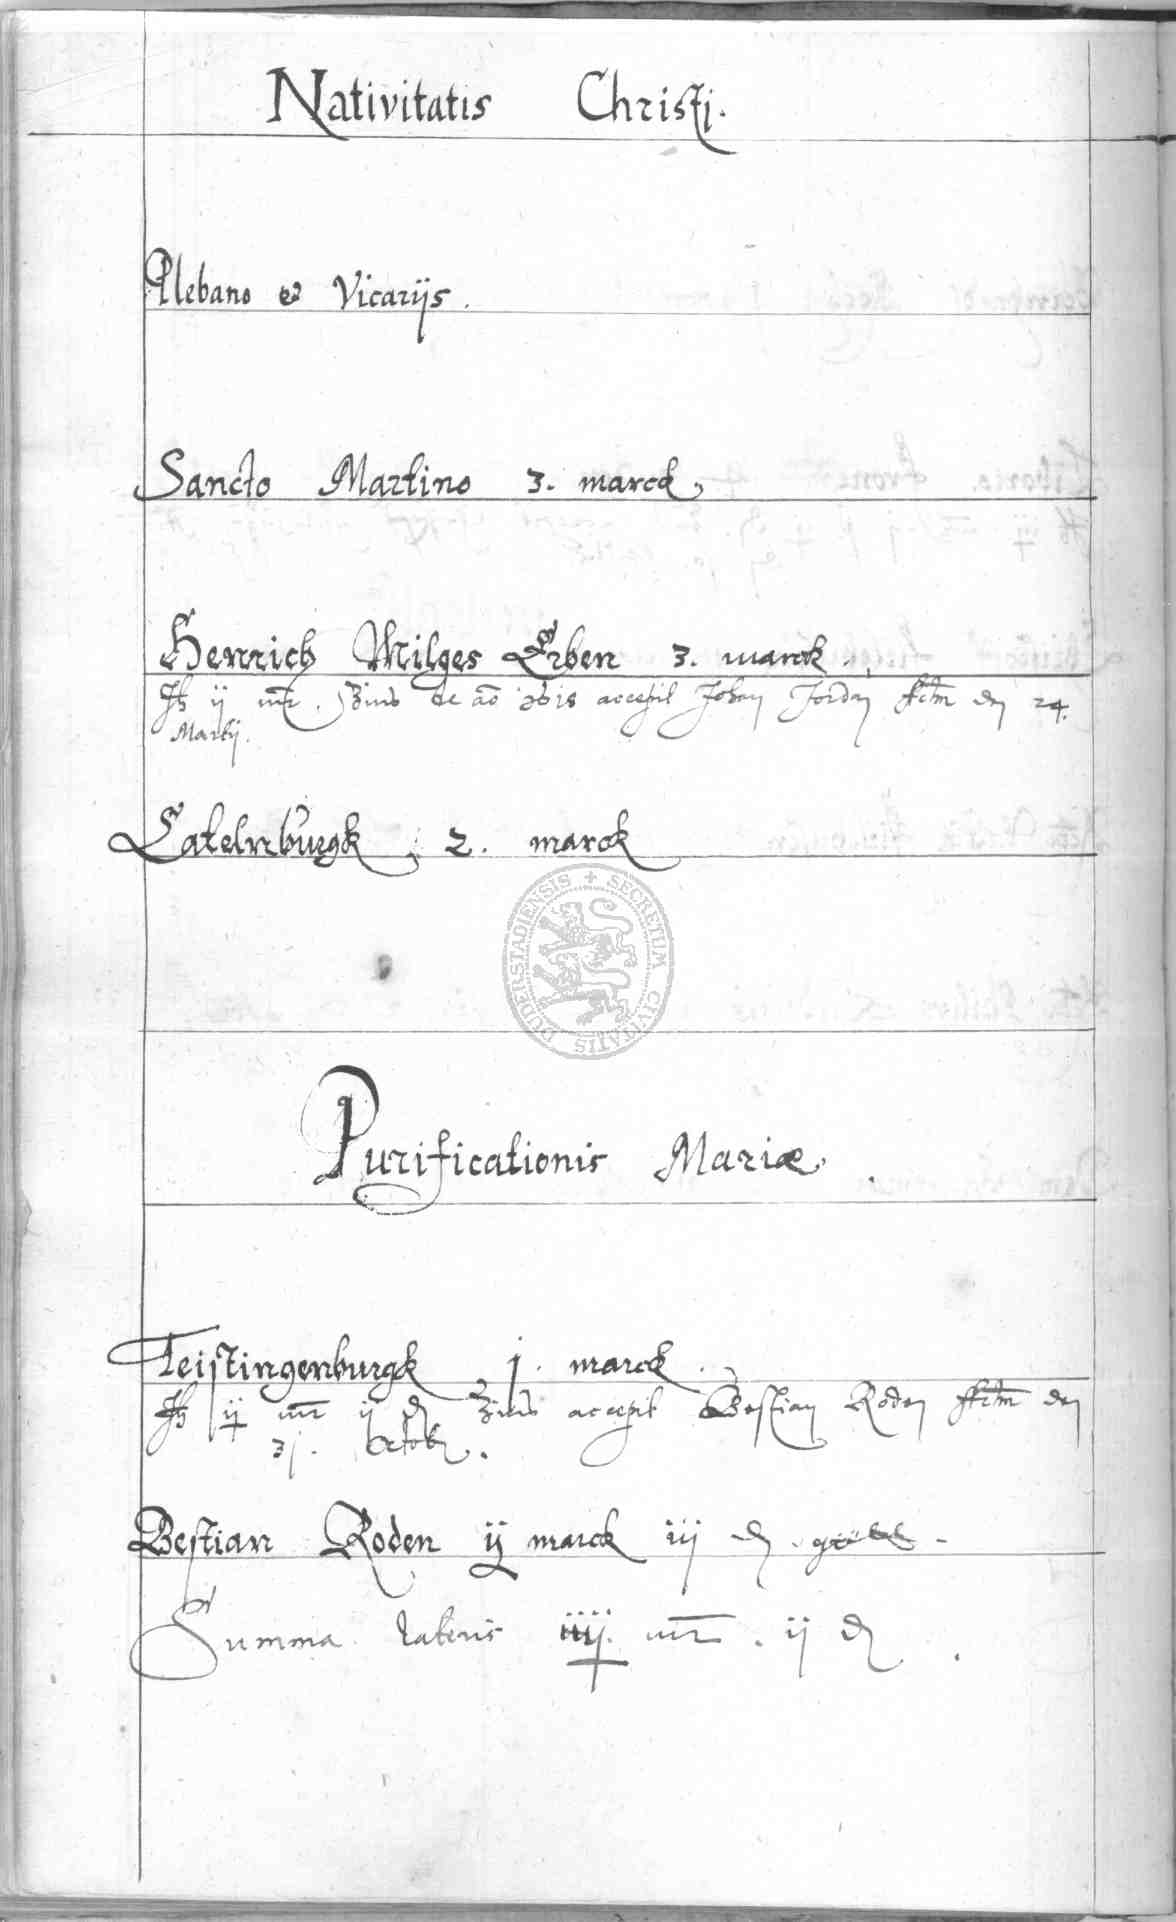 Nativitatis Christj.
Plebano et Vicarijs.
Sancto Martino 3. marck
Henrich Milges Erben 3. marck.
ij mr. Zins de ao accepit Johan Jordan den 24.
Martij.
Catelnburgk 2. marck
DUDERSTADIENSIS + SECRETUM CIVITATIS
Purificationis Mariæ.
Teistingenburgk j. marck.
mr ij Zins accepit Bestian Roden den
31. Octob.
Bestian Roden ij marck iij
Summa lateris mr. ij